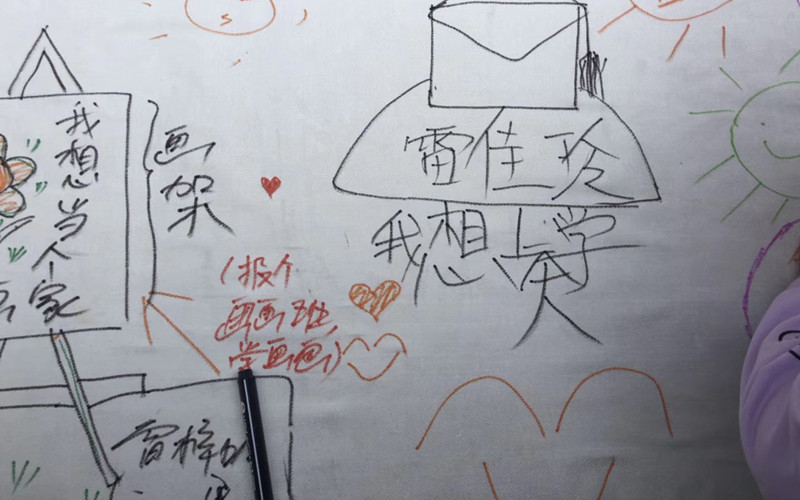 我想当人家
画架
(报个
画画班,
学画画)
雷佳玲
我想上学
大人
雷梓